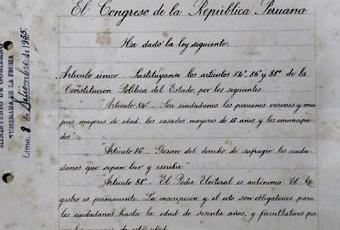 El Congreso de la República Peruana
Ha dado la ley siguiente:
Artículo único.- Sustitúyense los artículos 84°, 86° y 88° de la
Constitución Política del Estado, por los siguientes:
"Artículo 84°.- Son ciudadanos los peruanos varones y mu-
jeres mayores de edad, los casados mayores de 18 años y los emancipa-
dos".
"Artículo 86°.- Gozan del derecho de sufragio los ciuda-
danos que sepan leer y escribir."
"Artículo 88°.- El Poder Electoral es autónomo. El Re-
gistro es permanente. La inscripción y el voto son obligatorios para
los ciudadanos hasta la edad de sesenta años, y facultativos pa-
MINISTERIO DE GOBIERNO
NUMERADA EN LA FECHA
Lima, 8 de Setiembre de 1955